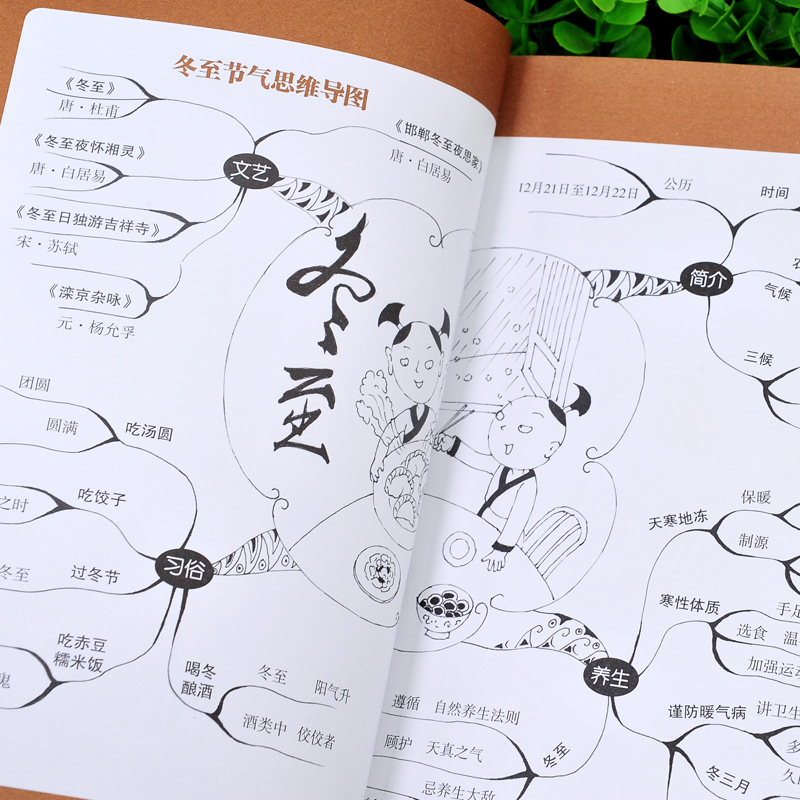 冬至节气思维导图
《冬至》
唐·杜甫
《冬至夜怀湘灵》
唐·白居易
《冬至日独游吉祥寺》
宋·苏轼
《滦京杂咏》
元·杨允孚
文艺
《邯郸冬至夜思家》
唐·白居易
冬至
团圆
圆满
吃汤圆
之时
吃饺子
冬至
过冬节
习俗
吃赤豆
糯米饭
鬼
喝冬
酿酒
冬至 阳气升
酒类中 佼佼者
12月21日至12月22日
公历
时间
简介
气候
三候
天寒地冻
保暖
制源
寒性体质
手足
选食 温
加强运动
养生
谨防暖气病
讲卫生
多
冬三月
久
冬至
遵循 自然养生法则
顾护 天真之气
忌养生大敌